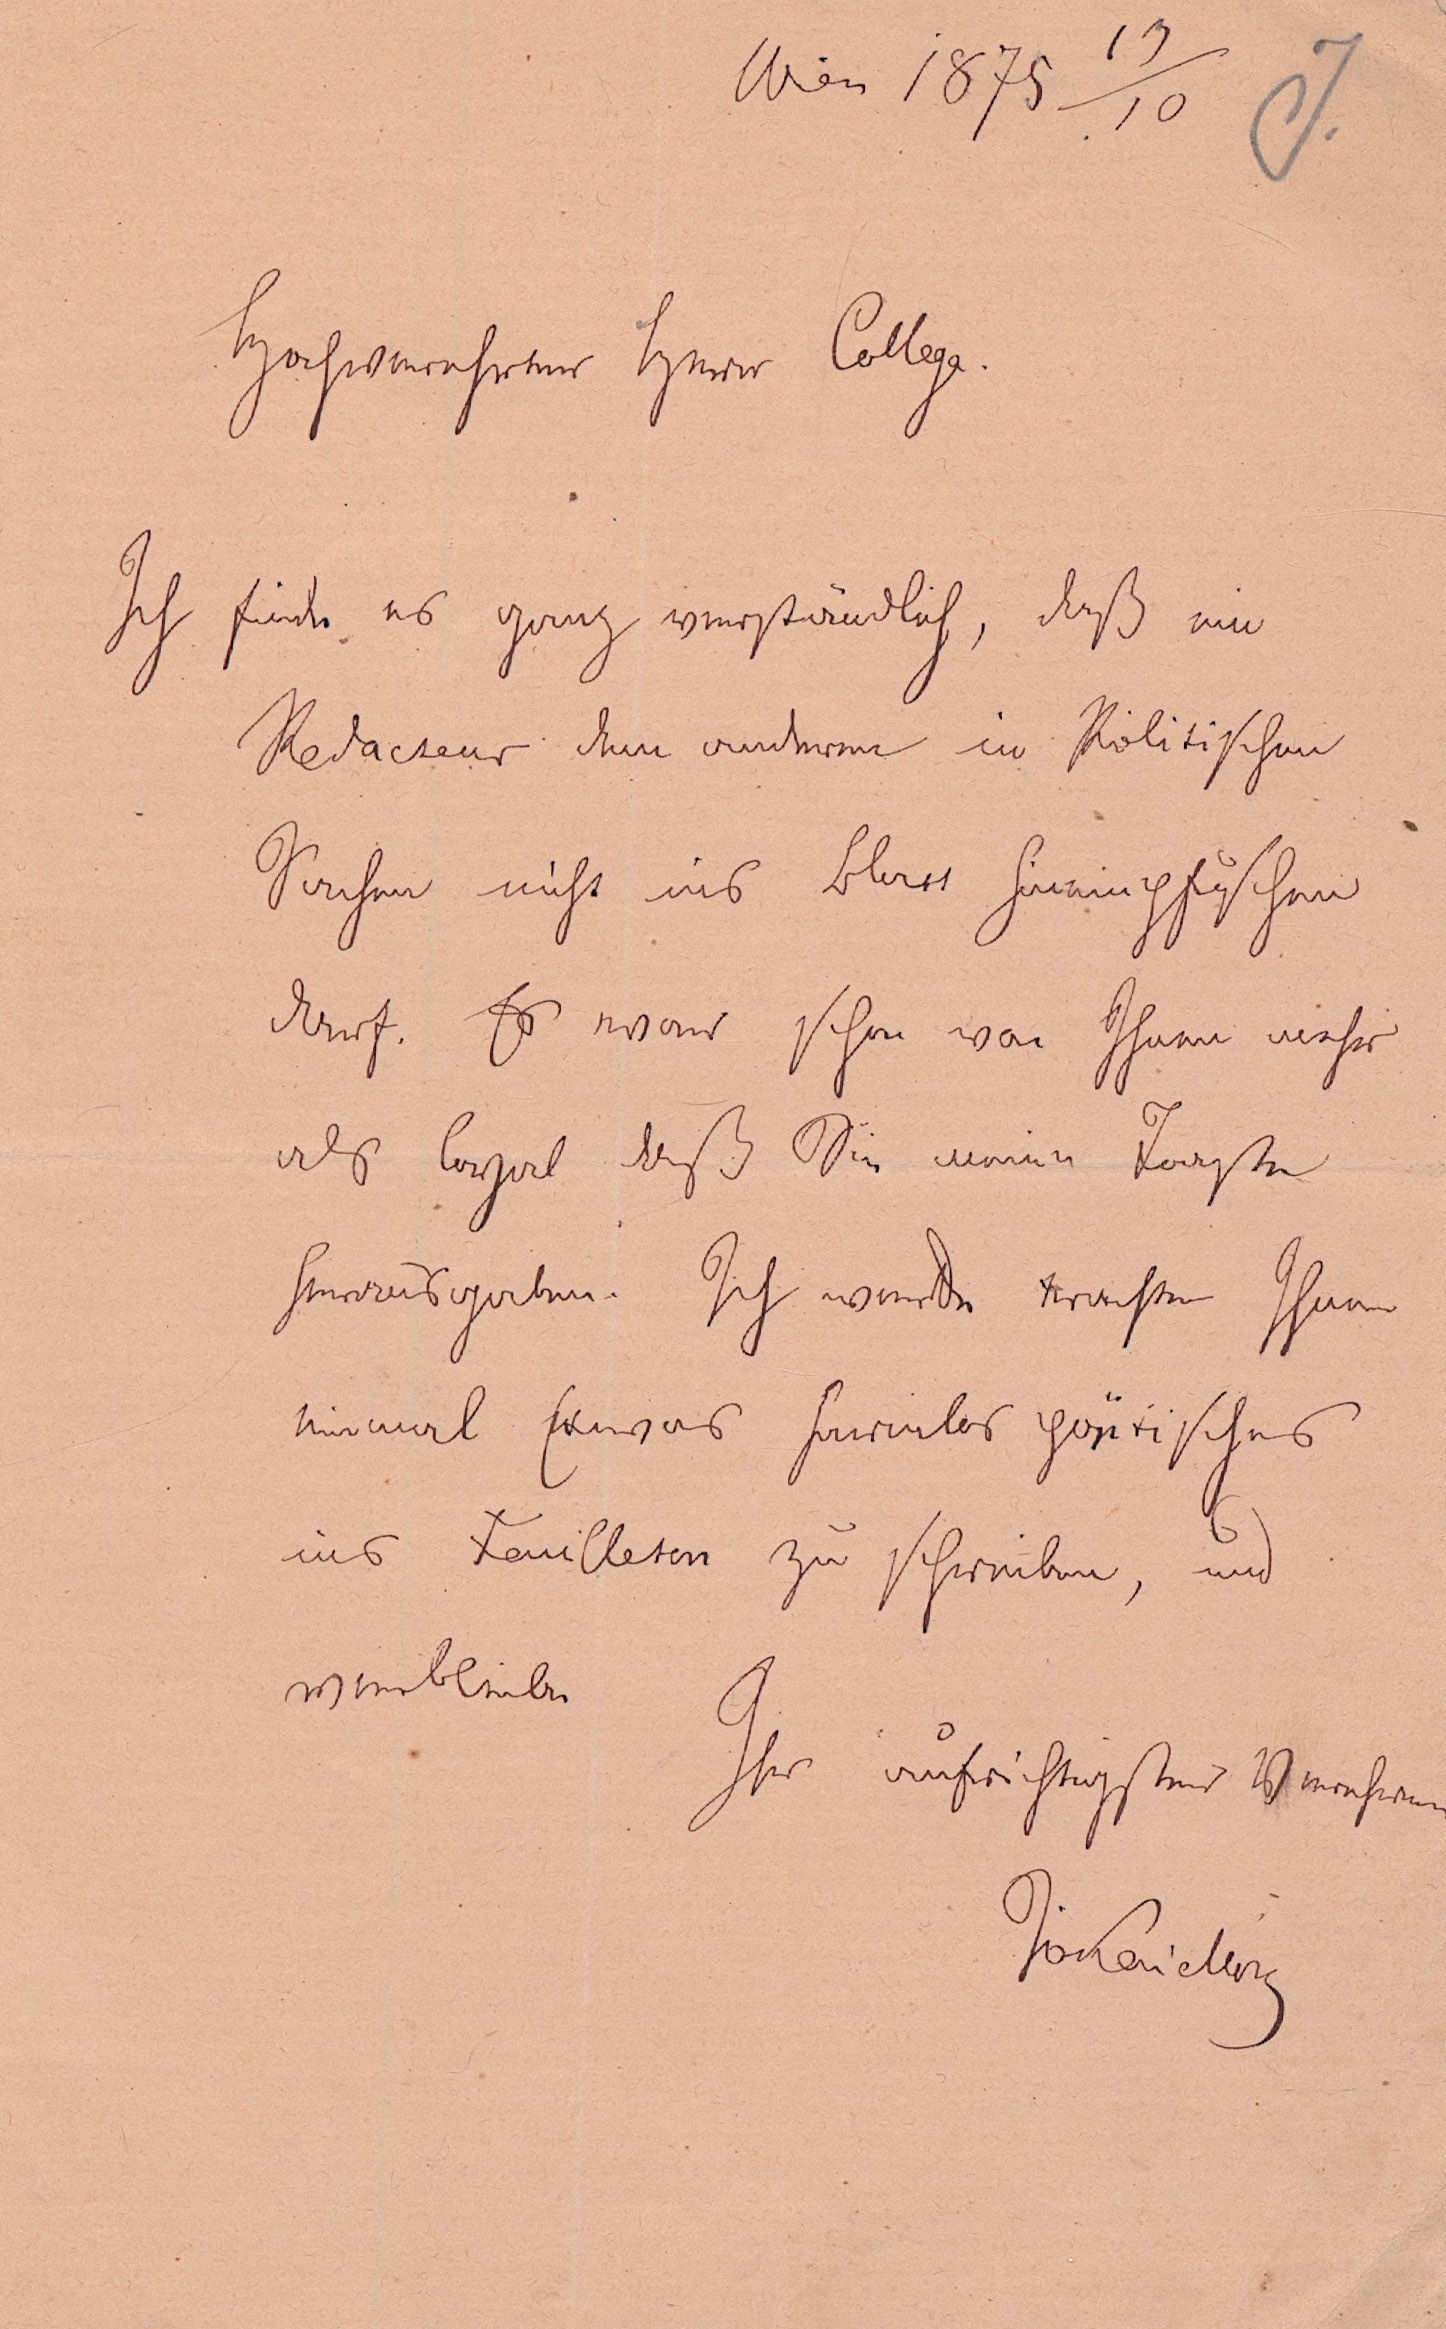 Wien 1875 13/10 J.
Hochverehrter Herr College.
Ich finde es ganz verständlich, daß ein
Redacteur dem anderen in Politischen
Sachen nicht ins Blatt hineinpfuschen
darf. Es war schon von Ihnen mehr
als loyal daß Sie meine
herausgaben. Ich werde trachten Ihnen
einmal Etwas harmlos poëtisches
ins Feuilleton zu schreiben, und
verbleibe
Ihr aufrichtigster Verehrer
Jókai Mór